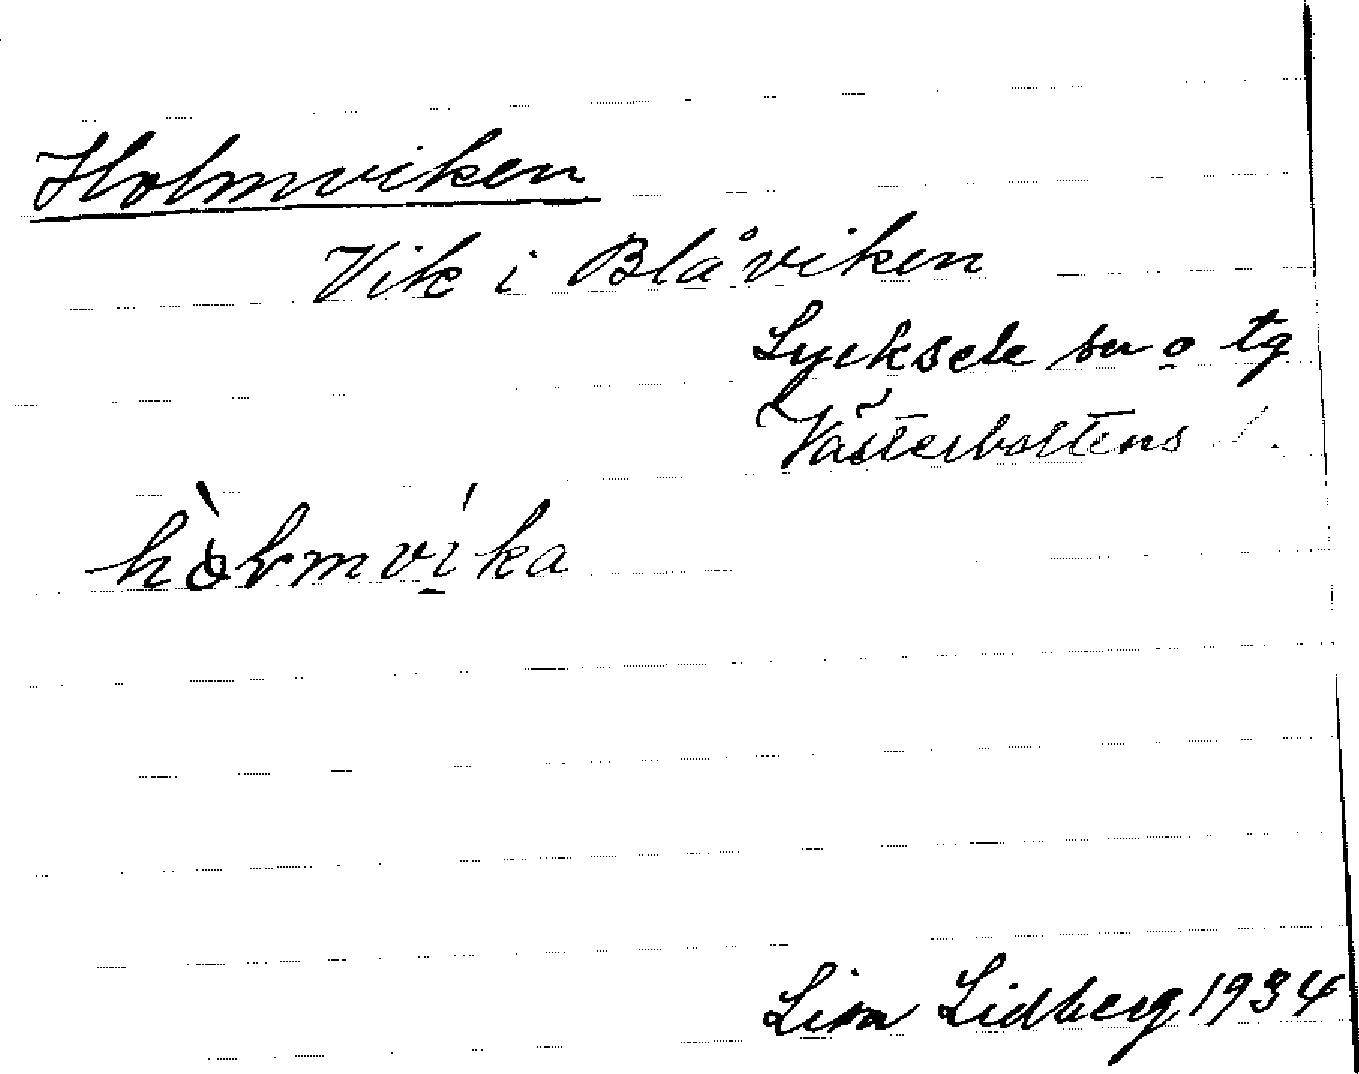 Holmviken
Vik i Blåviken
Lycksele sn o tg
Västerbottens l.
hòlmvi̱ka
Lisa Lidberg 1934